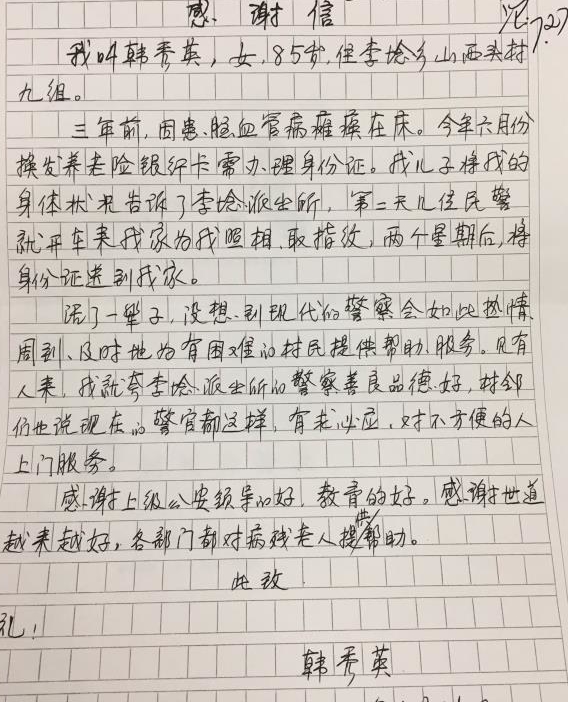 感谢信
7.27
我叫韩秀英，女，85岁，住李埝乡山西头村
九组。
三年前，因患脑血管病瘫痪在床。今年六月份
换发养老险银行卡需办理身份证。我儿子将我的
身体状况告诉了李埝派出所，第二天几位民警
就开车来我家为我照相、取指纹，两个星期后，将
身份证送到我家。
活了一辈子，没想到现代的警察会如此热情
周到、及时地为有困难的村民提供帮助、服务。见有
人来，我就夸李埝派出所的警察善良品德好，村邻
们也说现在的警官都这样，有求必应，对不方便的人
上门服务。
感谢上级公安领导的好，教育的好。感谢世道
越来越好，各部门都对病残老人提供帮助。
此致
礼！
韩秀英